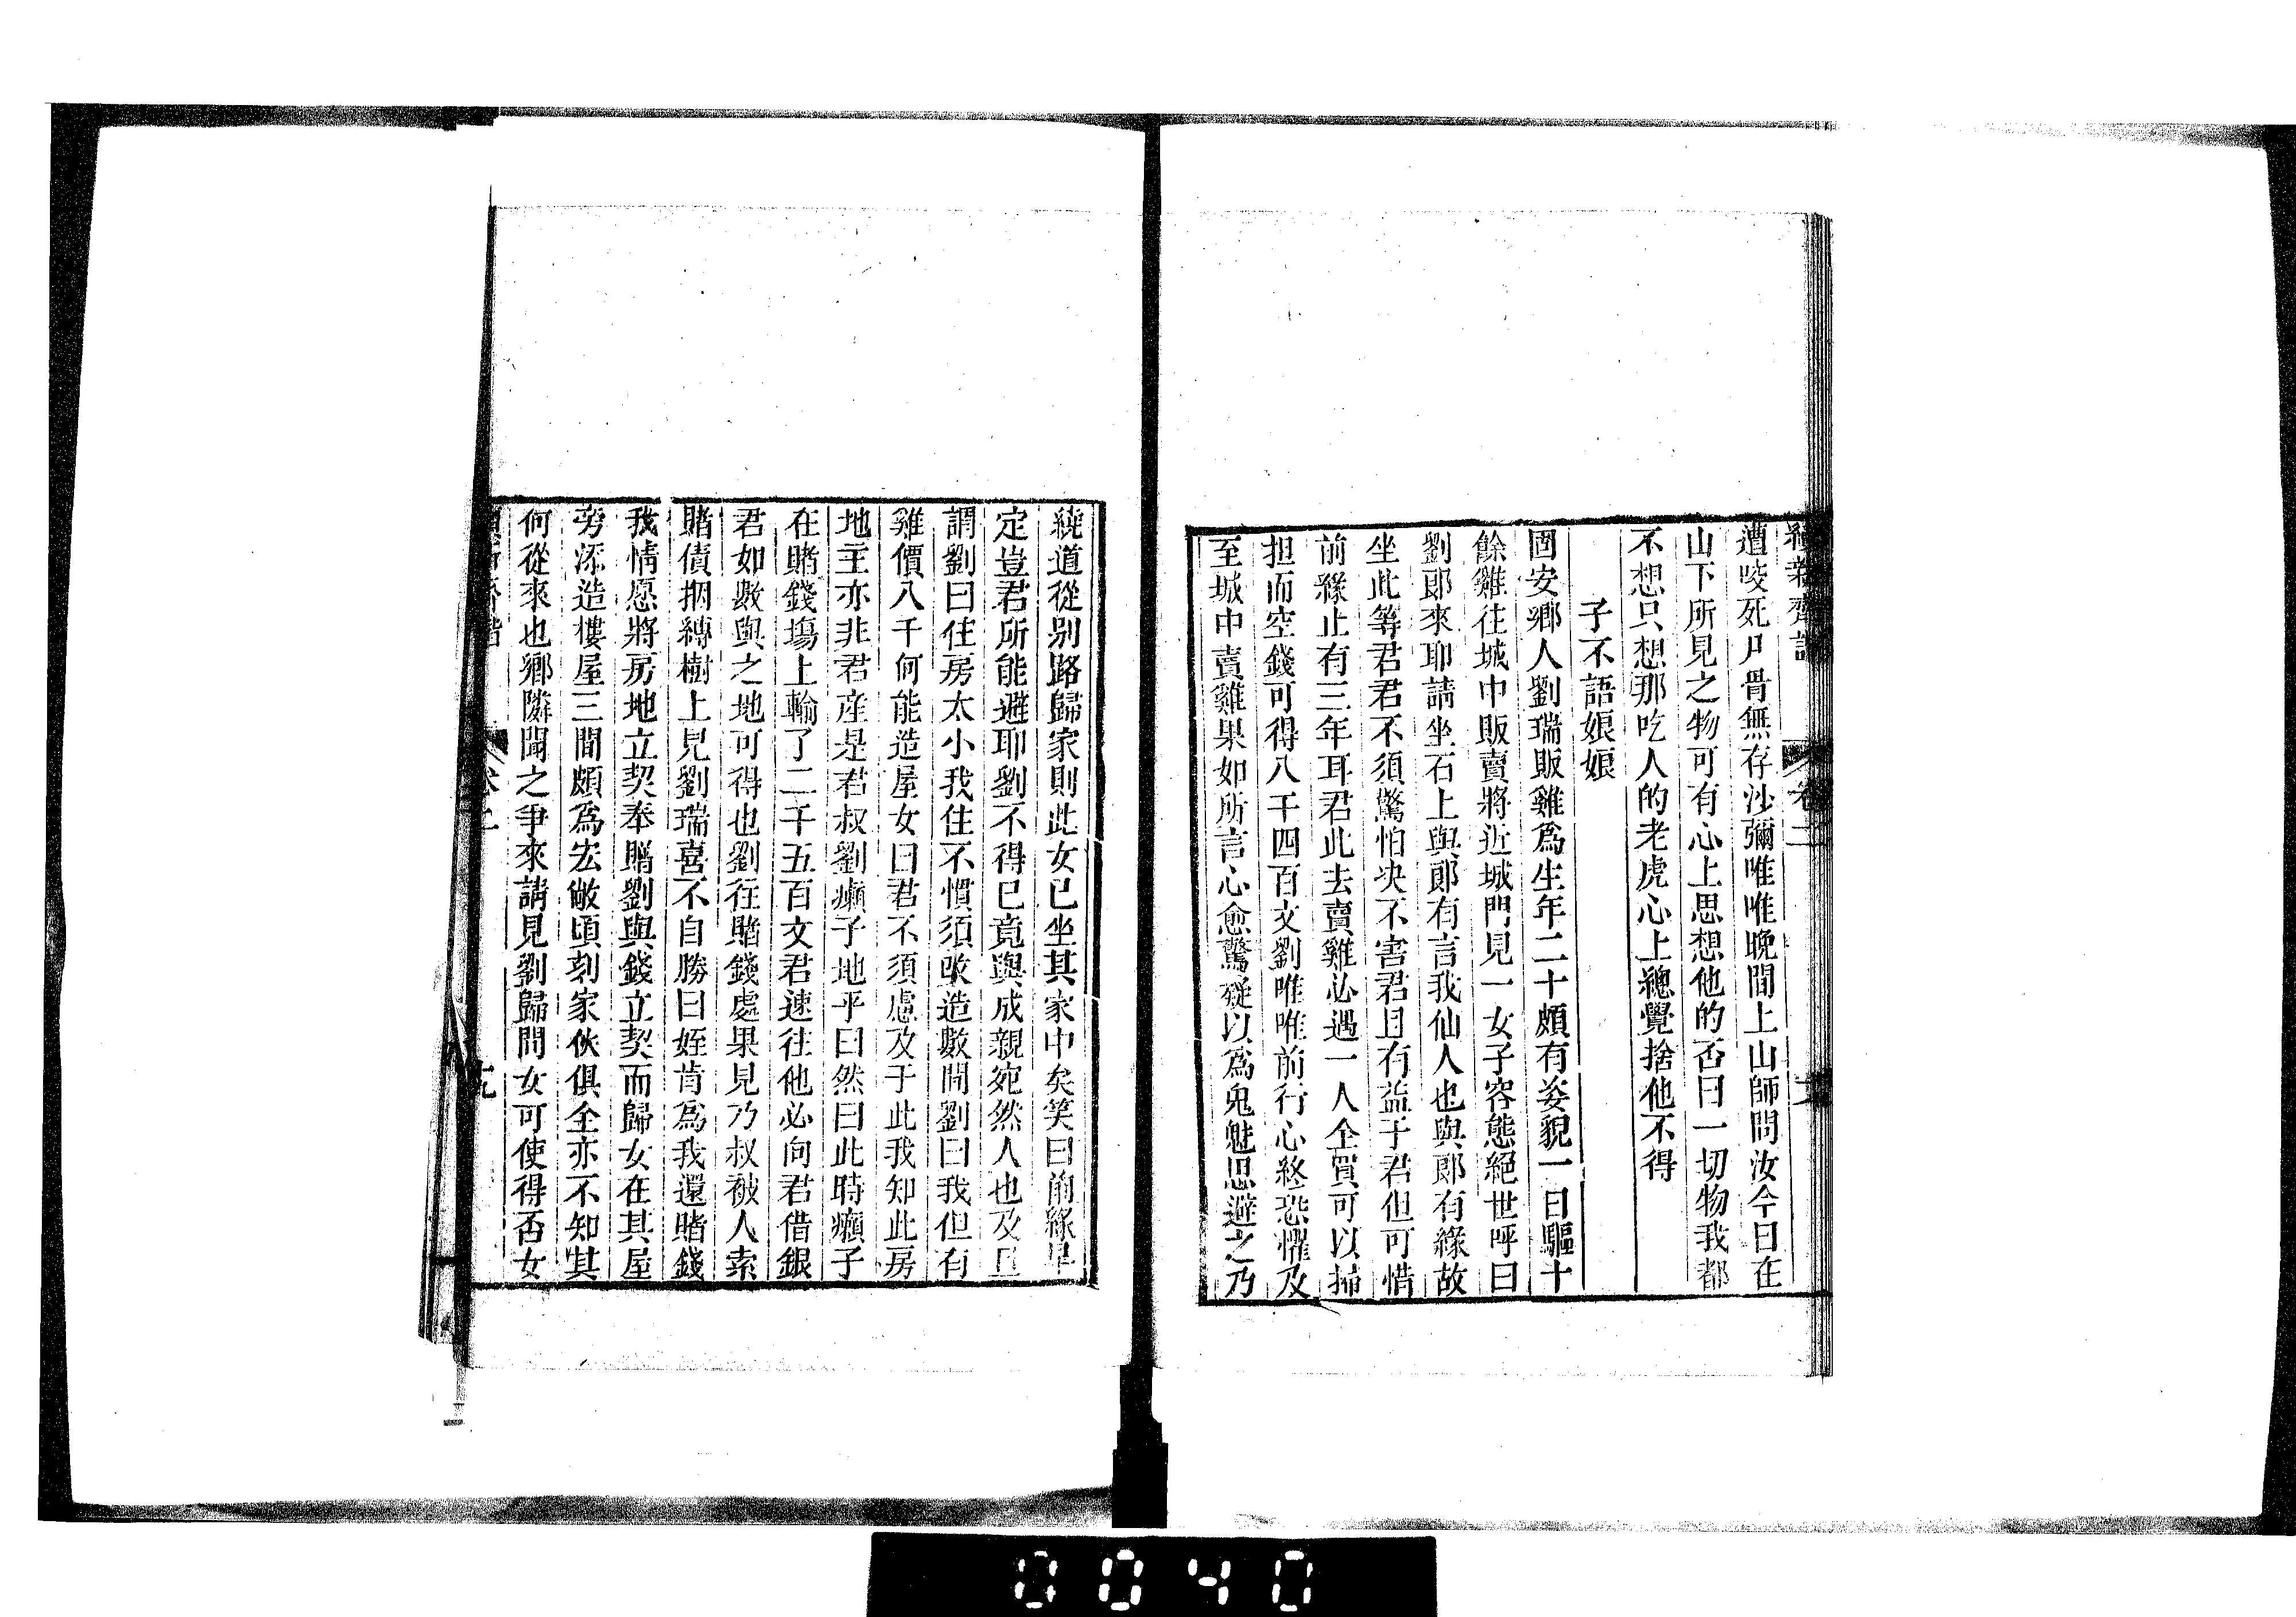 續新齊諧　卷二
遭咬死尸骨無存沙彌唯唯晚間上山師問汝今日在
山下所見之物可有心上思想他的否曰一切物我都
不想只想那吃人的老虎心上總覺捨他不得
子不語娘娘
固安鄉人劉瑞販雞爲生年二十頗有姿貌一日驅十
餘雞往城中販賣將近城門見一女子容態絕世呼曰
劉郎來耶請坐石上與郎有言我仙人也與郎有緣故
坐此等君君不須驚怕决不害君且有益于君但可惜
前緣止有三年耳君此去賣雞必遇一人全買可以掃
担而空錢可得八千四百文劉唯唯前行心終恐懼及
至城中賣雞果如所言心愈驚疑以爲鬼魅思避之乃
繞道從别路歸家則此女已坐其家中矣笑曰前緣早
定豈君所能避耶劉不得已竟與成親宛然人也及旦
謂劉曰住房太小我住不慣須改造數間劉曰我但有
雞價八千何能造屋女曰君不須慮及于此我知此房
地主亦非君産是君叔劉癩子地乎曰然曰此時癩子
在賭錢塲上輸了二千五百文君速往他必向君借銀
君如數與之地可得也劉往賭錢處果見乃叔被人索
賭債捆縛樹上見劉瑞喜不自勝曰姪肯爲我還賭錢
我情愿將房地立契奉贈劉與錢立契而歸女在其屋
旁添造樓屋三間頗爲宏敞頃刻家伙俱全亦不知其
何從來也鄉隣聞之爭來請見劉歸問女可使得否女
卷二